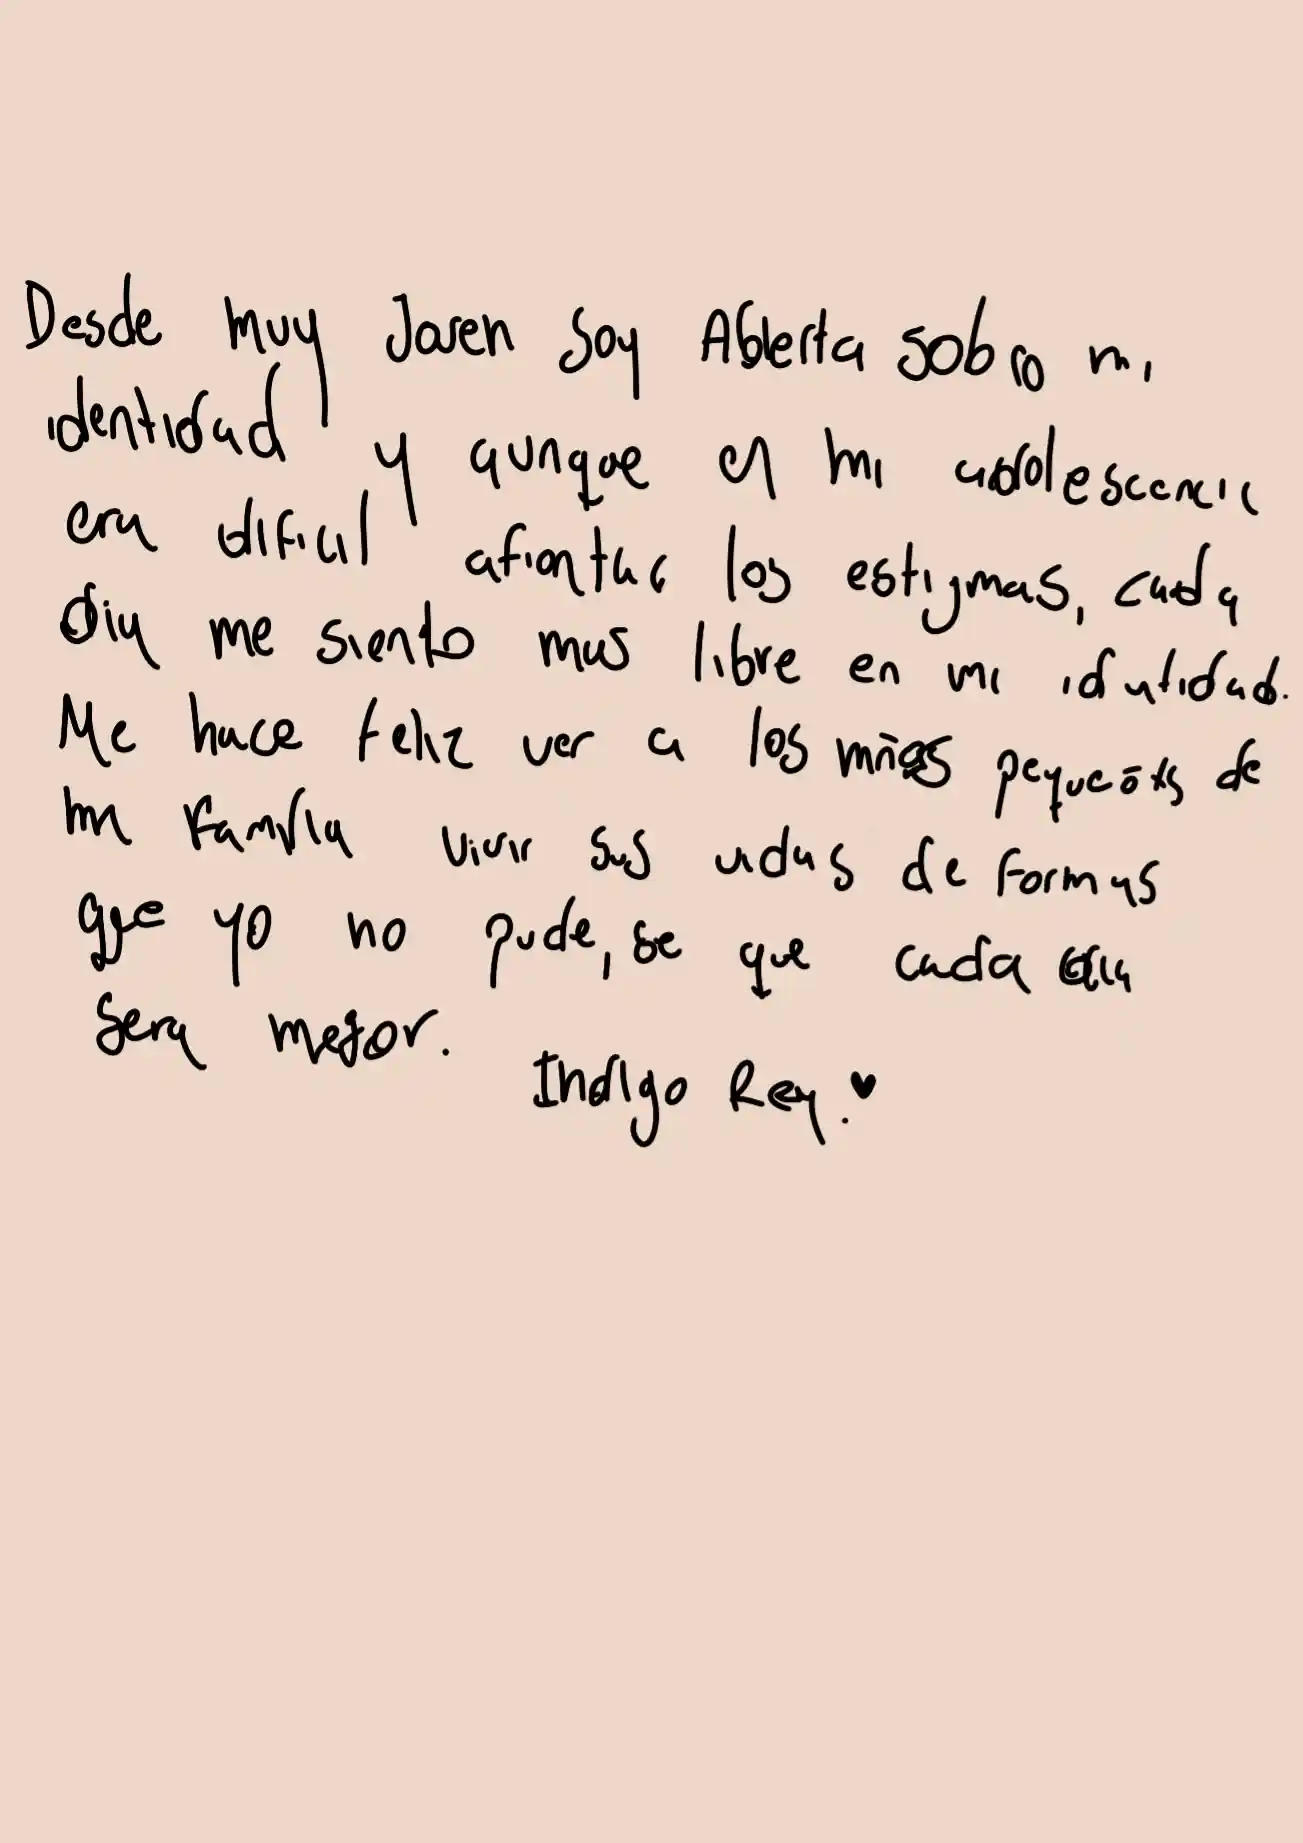 Desde muy Joven Soy Abierta sobre mi
identidad y aunque en mi adolescencia
era dificil afrontar los estigmas, cada
dia me siento mas libre en mi identidad.
Me hace feliz ver a los más pequeños de
mi familia vivir sus vidas de formas
que yo no pude, se que cada dia
sera mejor.
Indigo Rey. ♥